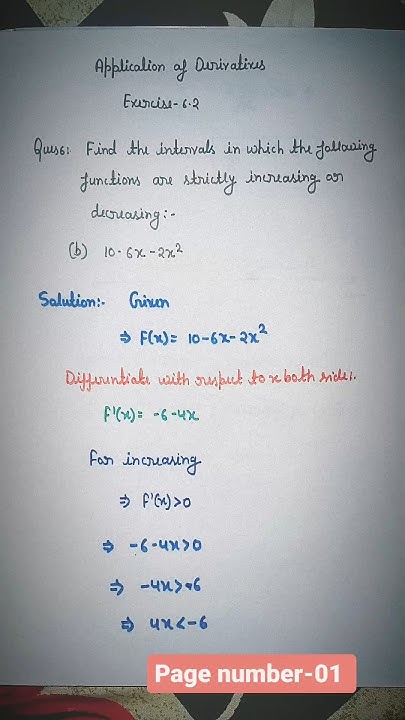 Application of Derivatives
Exercise-6.2
Ques6: Find the intervals in which the following
functions are strictly increasing or
decreasing:-
(b) 10-6x-2x²
Solution:- Given
⇒ F(x)= 10-6x-2x²
Differentiate with respect to x both side:.
f'(x)= -6-4x
For increasing
⇒ f'(x)>0
⇒ -6-4x>0
⇒ -4x>+6
⇒ 4x<-6
Page number-01